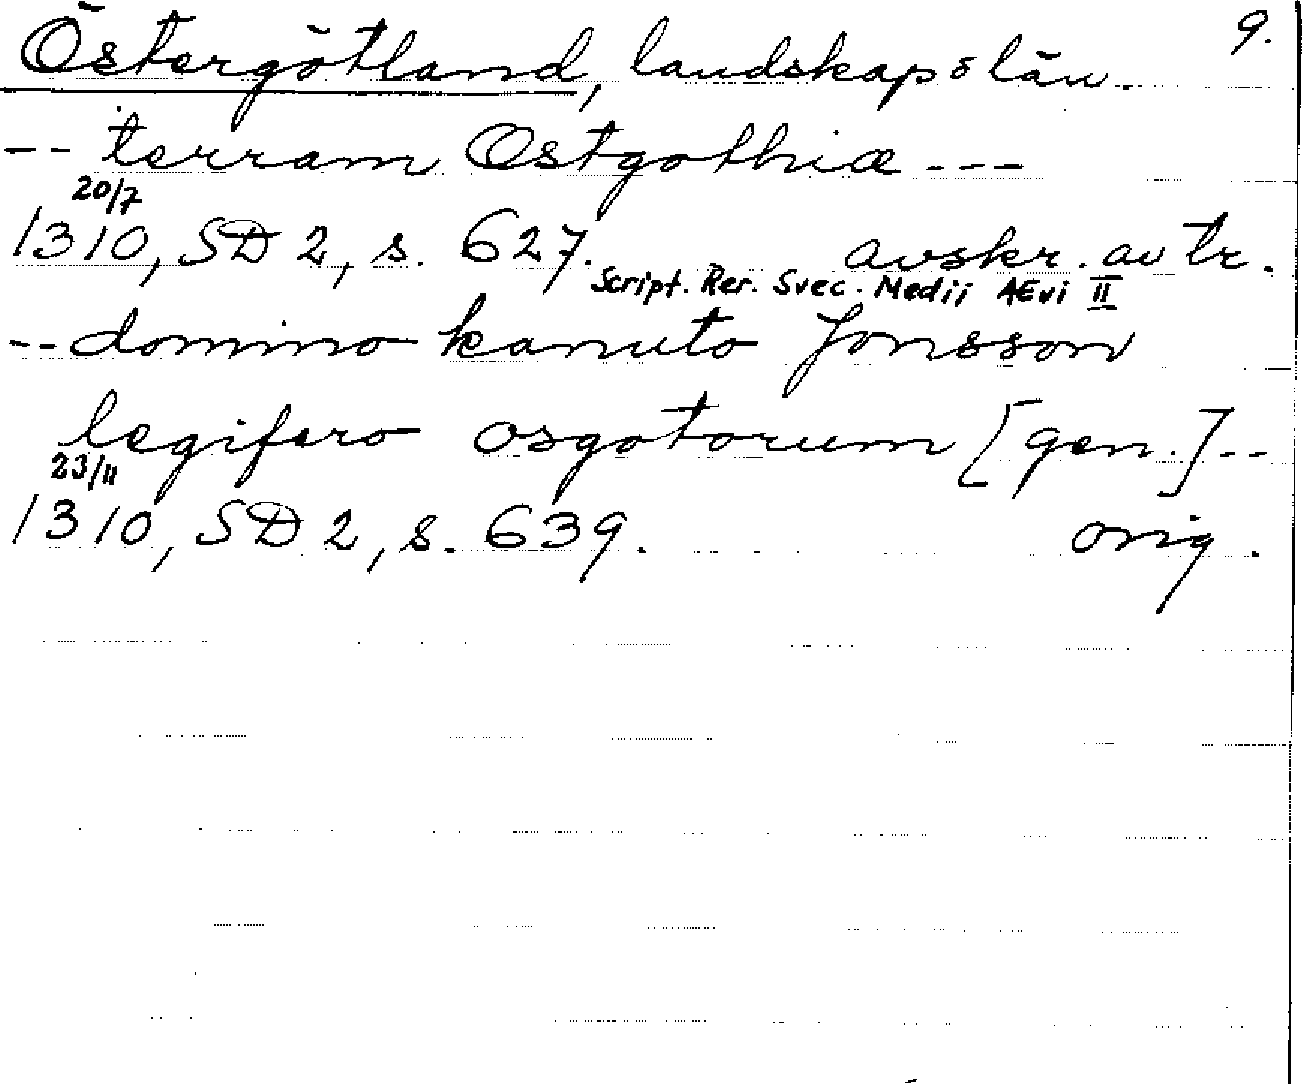 9.
Östergötland, landskap o län.
-- terram Ostgothiæ ---
20/7
1310, SD 2, s. 627. avskr. av tr.
Script. Rer. Svec. Medii AEvi II
-- domino kanuto Jonsson
legifero osgotorum [gen.] --
23/11
1310, SD 2, s. 639. orig.